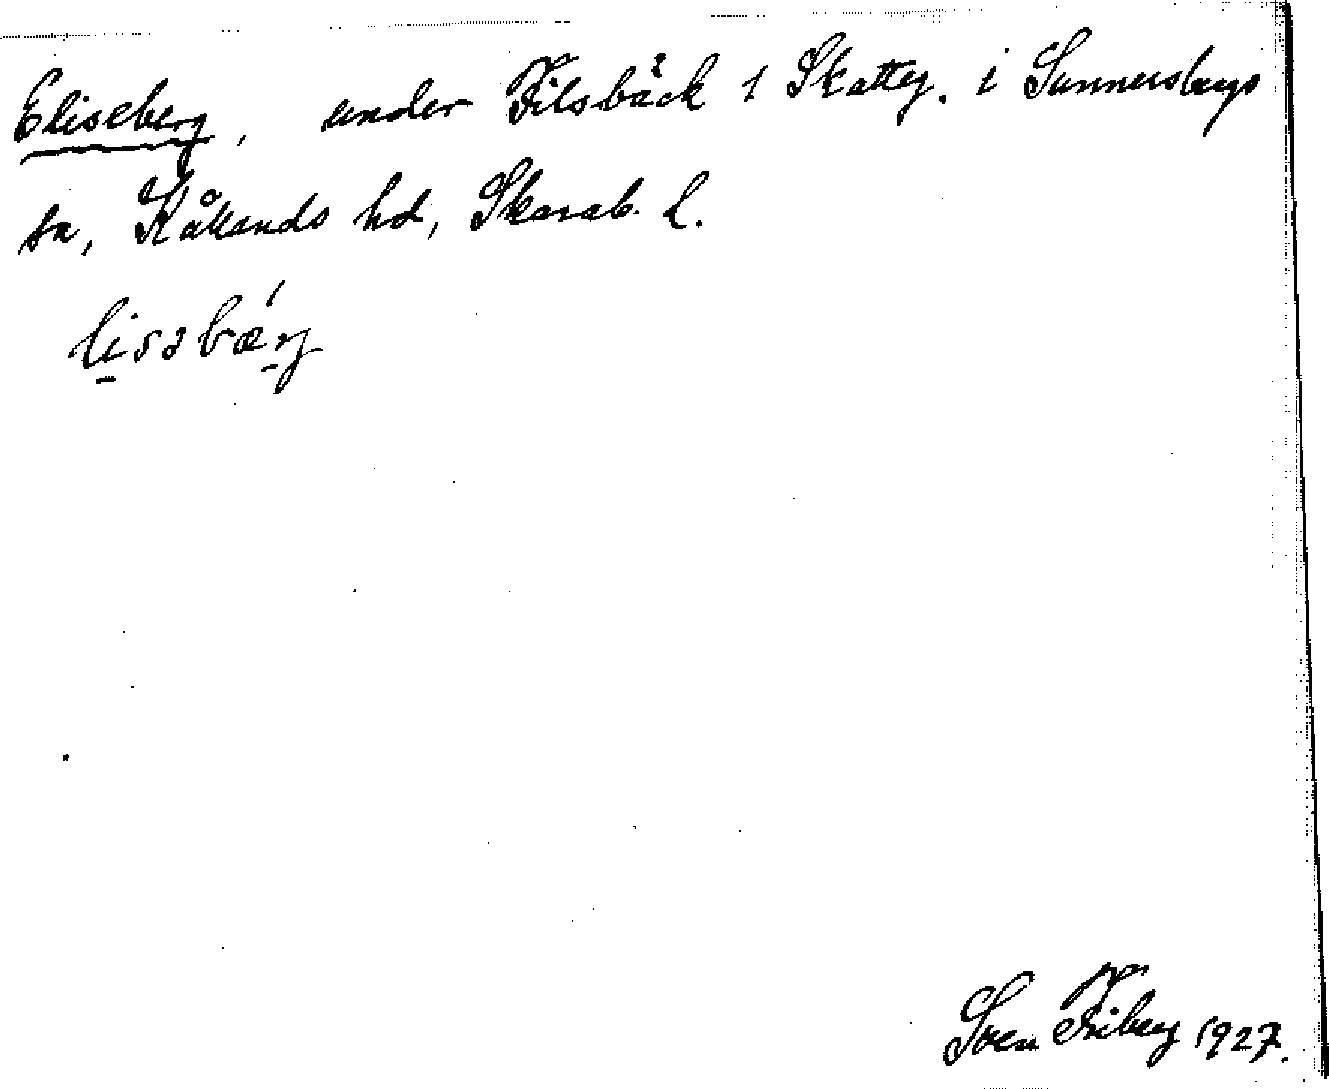 Eliseberg, under Filsbäck 1 Skatteg. i Sunnersbergs
sn, Kållands hd, Skarab. l.
lisabærj
Sven Friberg 1927.